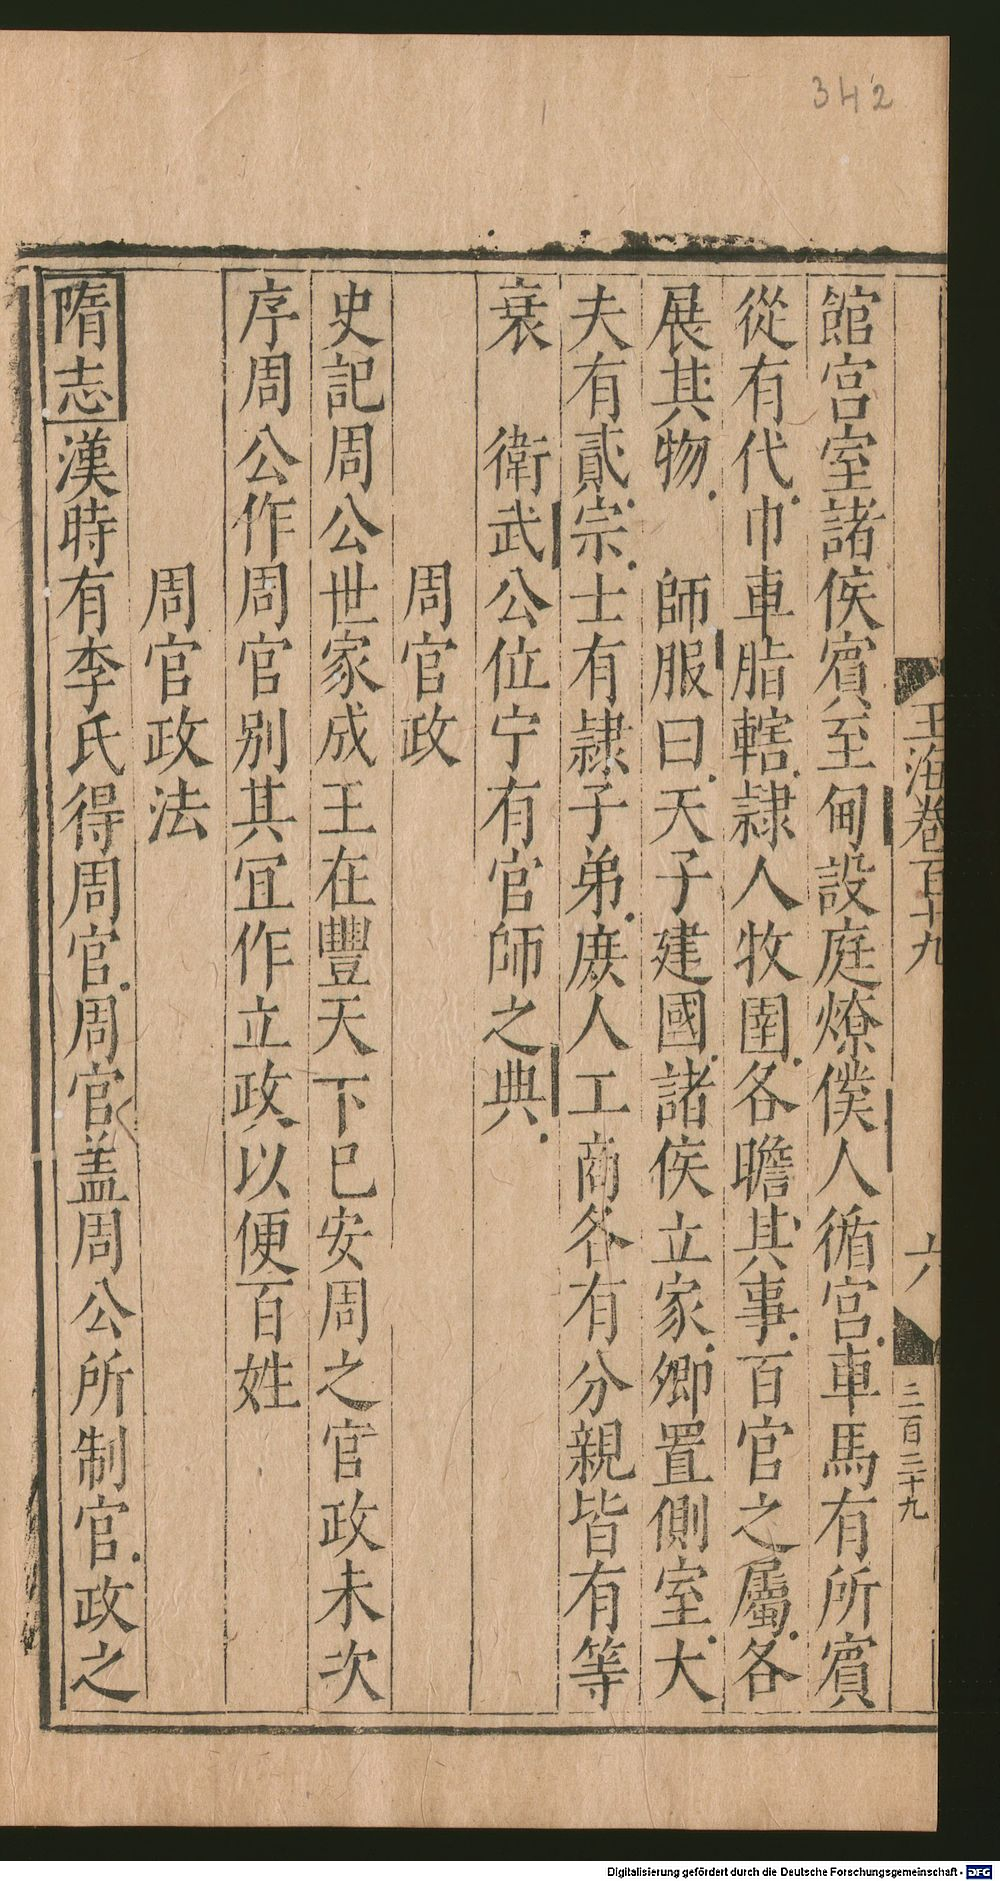 342
玉海卷百十九
六
二百三十九
館宫室諸侯賓至甸設庭燎僕人循宫車馬有所賓
從有代巾車脂轄隷人牧圉各瞻其事百官之屬各
展其物　師服曰天子建國諸侯立家卿置側室大
夫有貳宗士有隷子弟庶人工商各有分親皆有等
衰　衛武公位宁有官師之典
周官政
史記周公世家成王在豐天下已安周之官政未次
序周公作周官别其宜作立政以便百姓
周官政法
隋志漢時有李氏得周官周官盖周公所制官政之
Digitalisierung gefördert durch die Deutsche Forschungsgemeinschaft - DFG